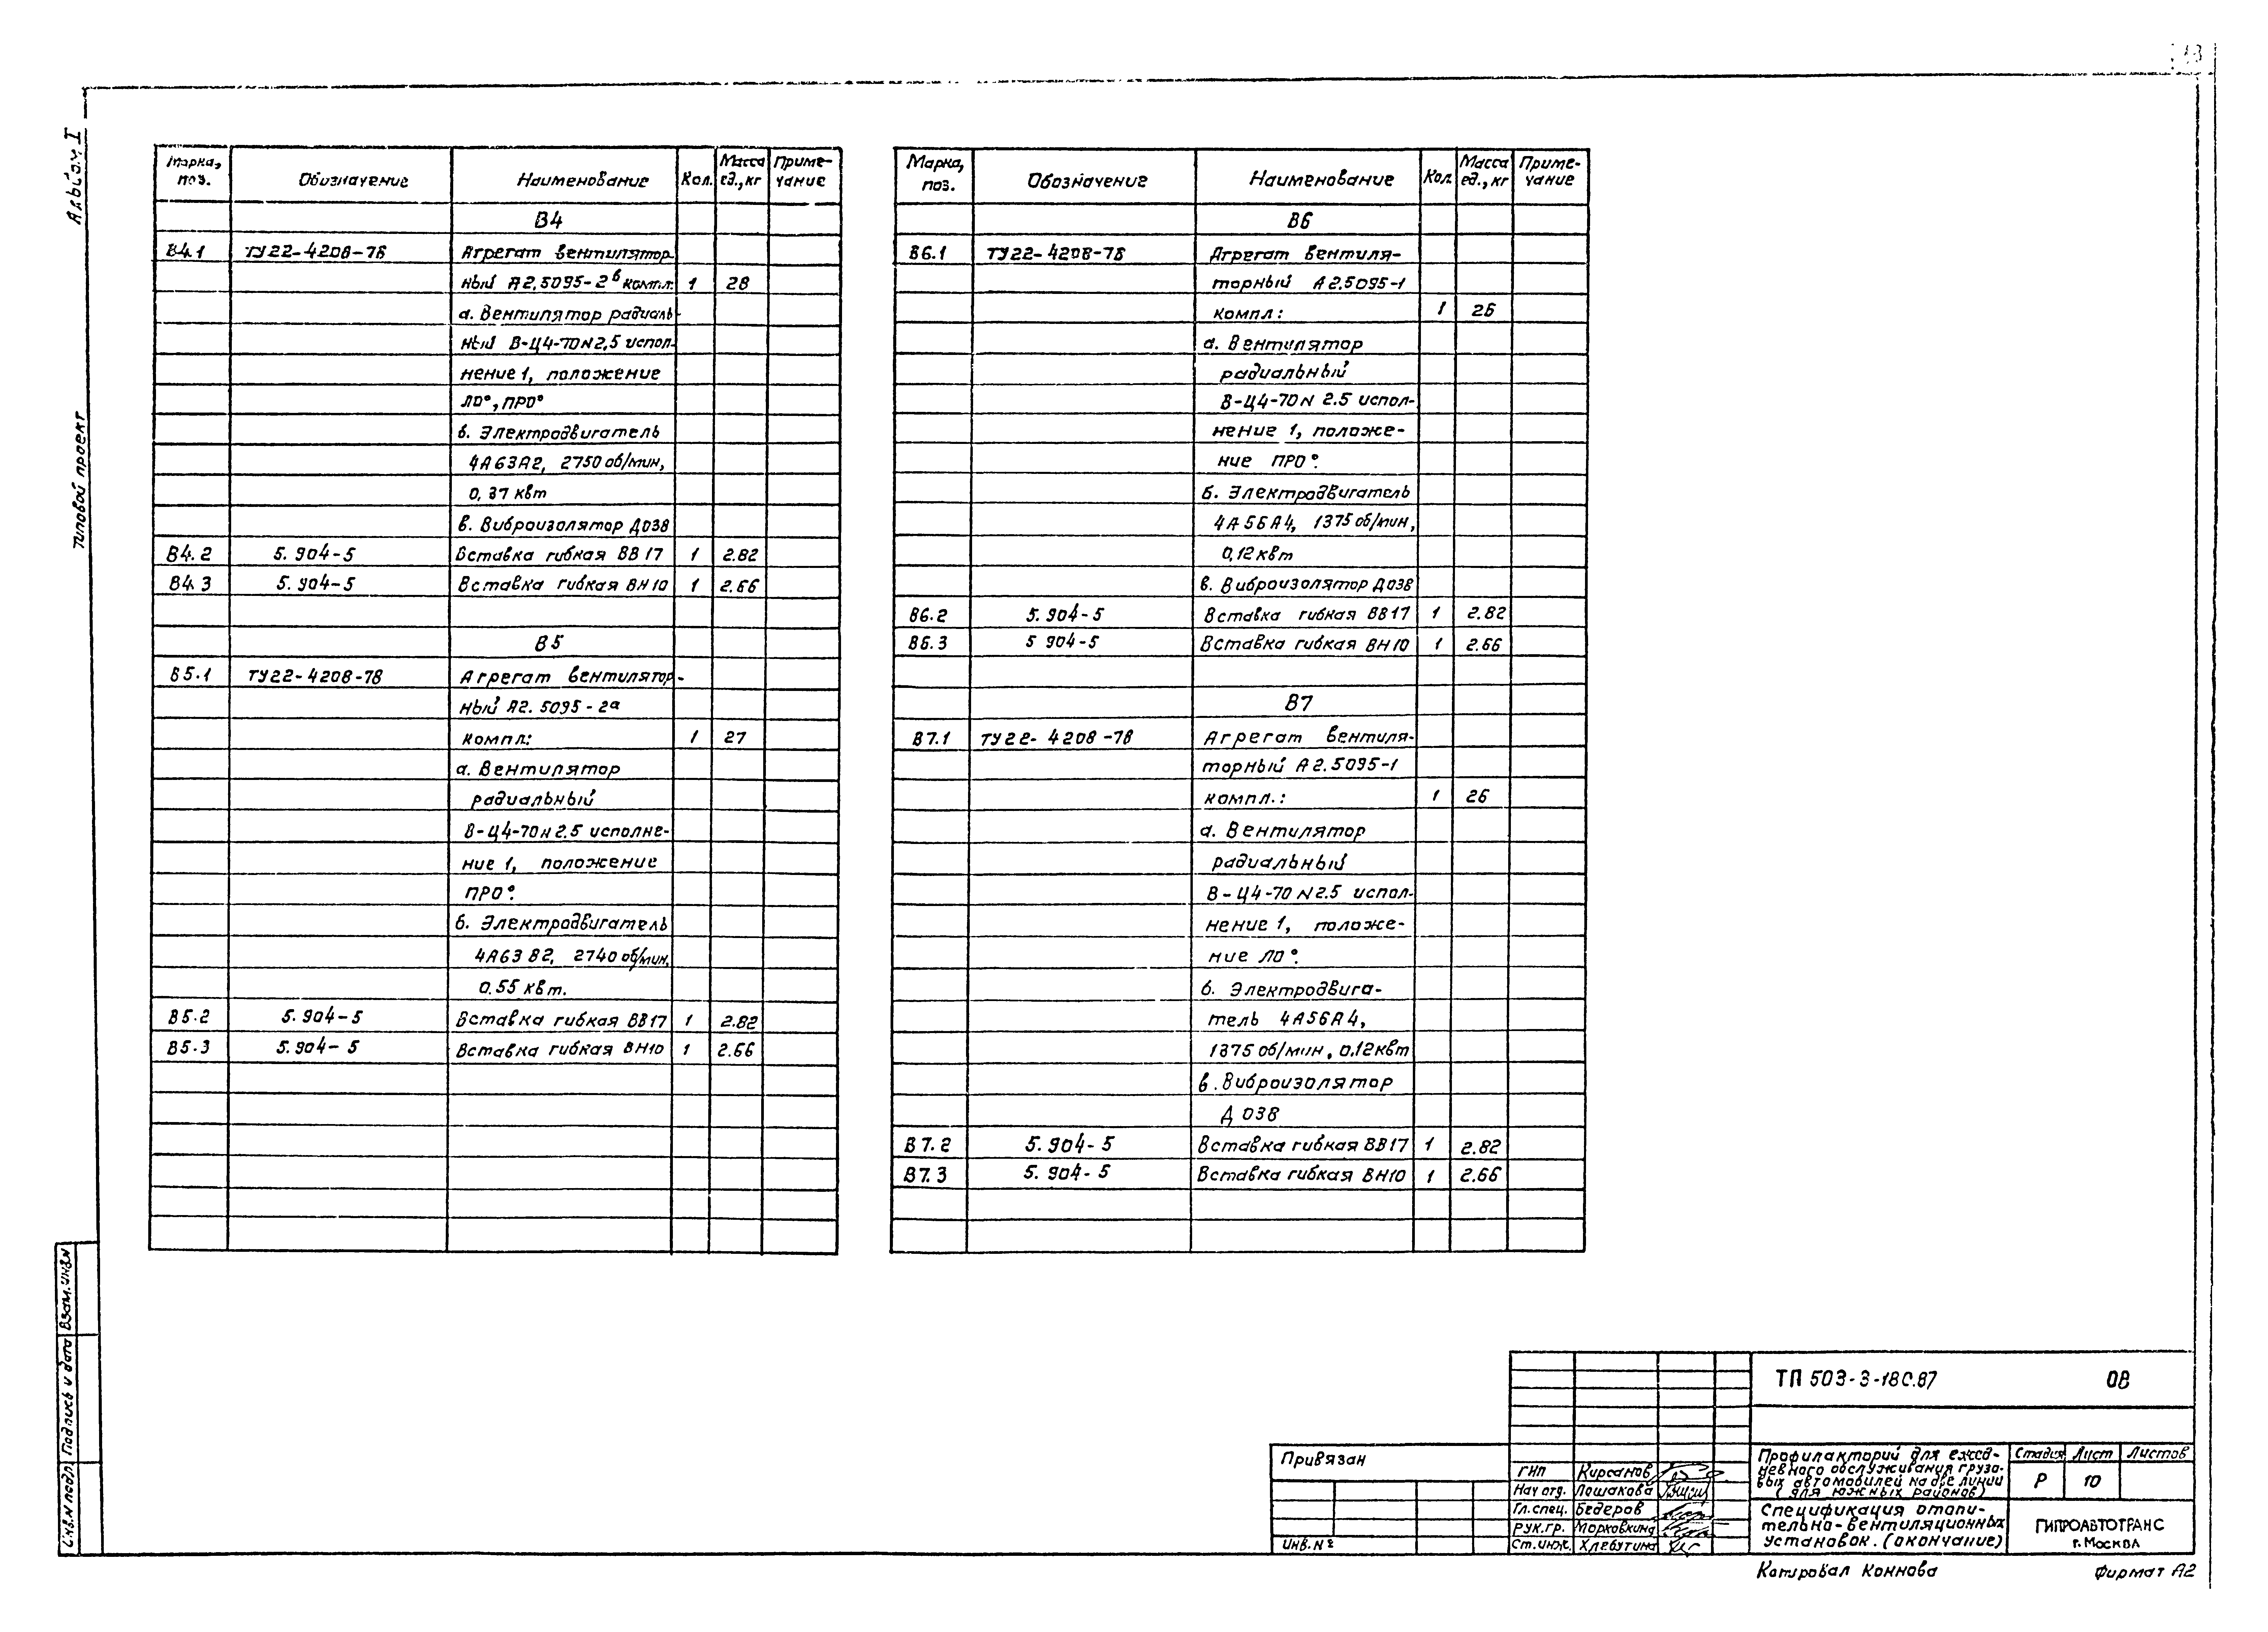 Альбом I
Типовой проект
Марка, поз. Обозначение Наименование Кол. Масса ед., кг Примечание
В4
В4.1 ТУ22-4208-78 Агрегат вентилятор-
ный А2.5095-2в компл. 1 28
а. Вентилятор радиаль-
ный В-Ц4-70 N2,5 испол-
нение 1, положение
Л0°, ПР0°
б. Электродвигатель
4А63А2, 2750 об/мин,
0,37 квт
в. Виброизолятор Д038
В4.2 5.904-5 Вставка гибкая ВВ17 1 2.82
В4.3 5.904-5 Вставка гибкая ВН10 1 2.66
В5
В5.1 ТУ22-4208-78 Агрегат вентилятор-
ный А2.5095-2а
компл: 1 27
а. Вентилятор
радиальный
В-Ц4-70 N 2.5 исполне-
ние 1, положение
ПР0°.
б. Электродвигатель
4А63В2, 2740 об/мин,
0.55 квт.
В5.2 5.904-5 Вставка гибкая ВВ17 1 2.82
В5.3 5.904-5 Вставка гибкая ВН10 1 2.66
Марка, поз. Обозначение Наименование Кол. Масса ед., кг Примечание
В6
В6.1 ТУ22-4208-78 Агрегат вентиля-
торный А2.5095-1
компл: 1 26
а. Вентилятор
радиальный
В-Ц4-70 N 2.5 испол-
нение 1, положе-
ние ПР0°.
б. Электродвигатель
4А56А4, 1375 об/мин,
0,12 квт
в. Виброизолятор Д038
В6.2 5.904-5 Вставка гибкая ВВ17 1 2.82
В6.3 5 904-5 Вставка гибкая ВН10 1 2.66
В7
В7.1 ТУ22-4208-78 Агрегат вентиля-
торный А2.5095-1
компл.: 1 26
а. Вентилятор
радиальный
В-Ц4-70 N2.5 испол-
нение 1, положе-
ние Л0°.
б. Электродвига-
тель 4А56А4,
1375 об/мин, 0,12 квт
в. Виброизолятор
Д 038
В7.2 5.904-5 Вставка гибкая ВВ17 1 2.82
В7.3 5.904-5 Вставка гибкая ВН10 1 2.66
Взам. инв.N
Подпись и дата
Инв.N подл.
ТП 503-3-180.87 ОВ
Привязан
Инв. №
ГИП Кирсанов
Нач отд. Лошакова
Гл.спец. Бедеров
Рук.гр. Морковкина
Ст.инж. Хлебутина
Профилакторий для ежед-
невного обслуживания грузо-
вых автомобилей на две линии
(для южных районов)
Стадия Лист Листов
Р 10
Спецификация отопи-
тельно-вентиляционных
установок. (окончание)
ГИПРОАВТОТРАНС
г. Москва
Копировал Коннова Формат А2